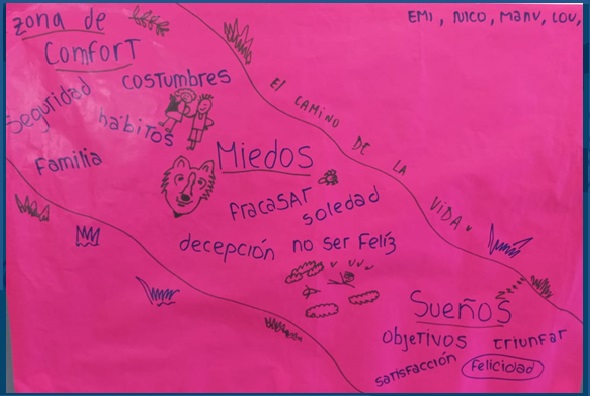 zona de
comfort
EMI, NICO, MANU, LOU,
Seguridad
costumbres
hábitos
Familia
EL CAMINO DE LA VIDA
Miedos
fracasar
soledad
decepción
no ser Felíz
Sueños
objetivos
triunfar
satisfacción
felicidad